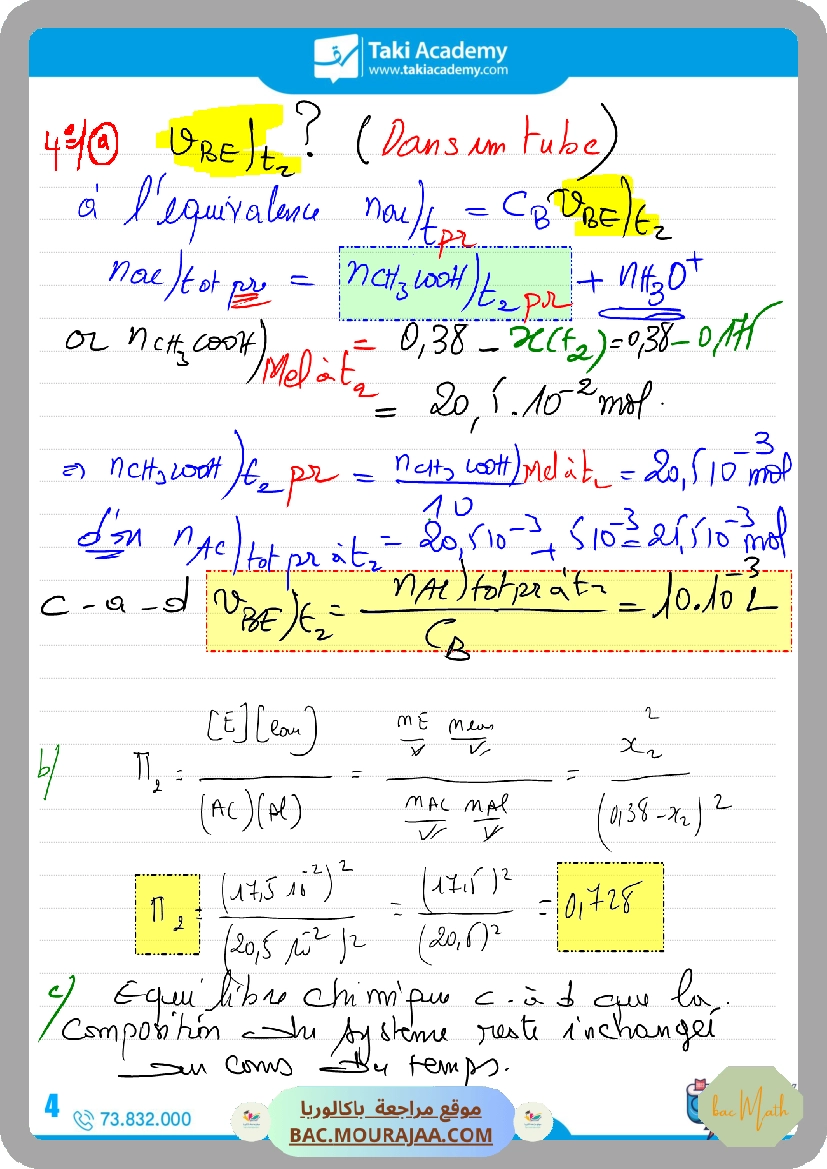 Taki Academy
www.takiacademy.com
4°/ⓐ V_BE)t₂ ? (Dans un tube)
à l'équivalence n_ac)t_pr = C_B V_BE)t₂
n_ac)tot pr = n_CH₃COOH)t₂ pr + n_H₃O⁺
or n_CH₃COOH)Mel à t₂ = 0,38 - x(t₂) = 0,38 - 0,175
= 20,5.10⁻² mol.
⇒ n_CH₃COOH)t₂ pr = n_CH₃COOH)Mel à t₂ / 10 = 20,5 10⁻³ mol
d'où n_AC)tot pr à t₂ = 20,5 10⁻³ + 5 10⁻³ = 25,5 10⁻³ mol
c-a-d V_BE)t₂ = n_AC)tot pr à t₂ / C_B = 10.10⁻³ L
b/ Π₂ = [E][eau] / (AC)(Al) = (nE/V neau/V) / (nAC/V nAl/V) = x₂² / (0,38-x₂)²
Π₂ = (17,5 10⁻²)² / (20,5 10⁻²)² = (17,5)² / (20,5)² = 0,728
c/ Equilibre chimique c.à d que la
composition du système reste inchangé
au cours du temps.
4 73.832.000
موقع مراجعة باكالوريا
BAC.MOURAJAA.COM
bac Math